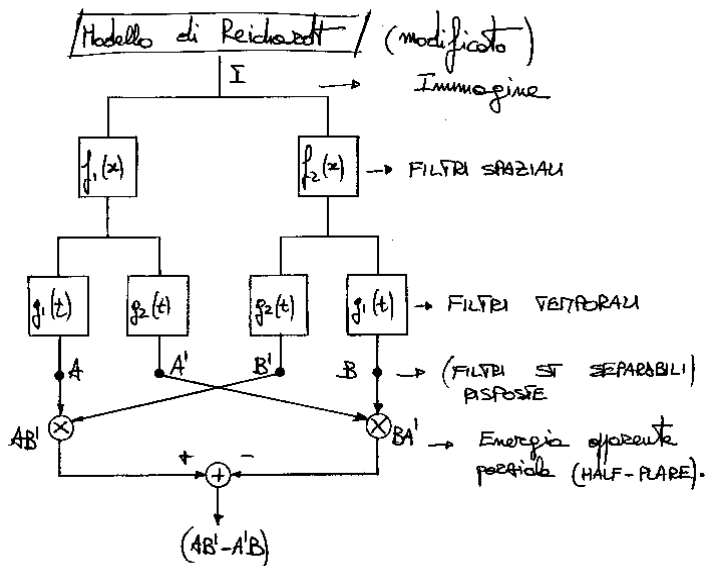 Modello di Reichardt (modificato)
I
Immagine
f₁(x) f₂(x) → FILTRI SPAZIALI
g₁(t) g₂(t) g₂(t) g₁(t) → FILTRI TEMPORALI
A A' B' B → (FILTRI ST SEPARABILI)
RISPOSTE
AB' × × BA' → Energia apparente
parziale (HALF-PLARE).
+ + -
(AB'-A'B)